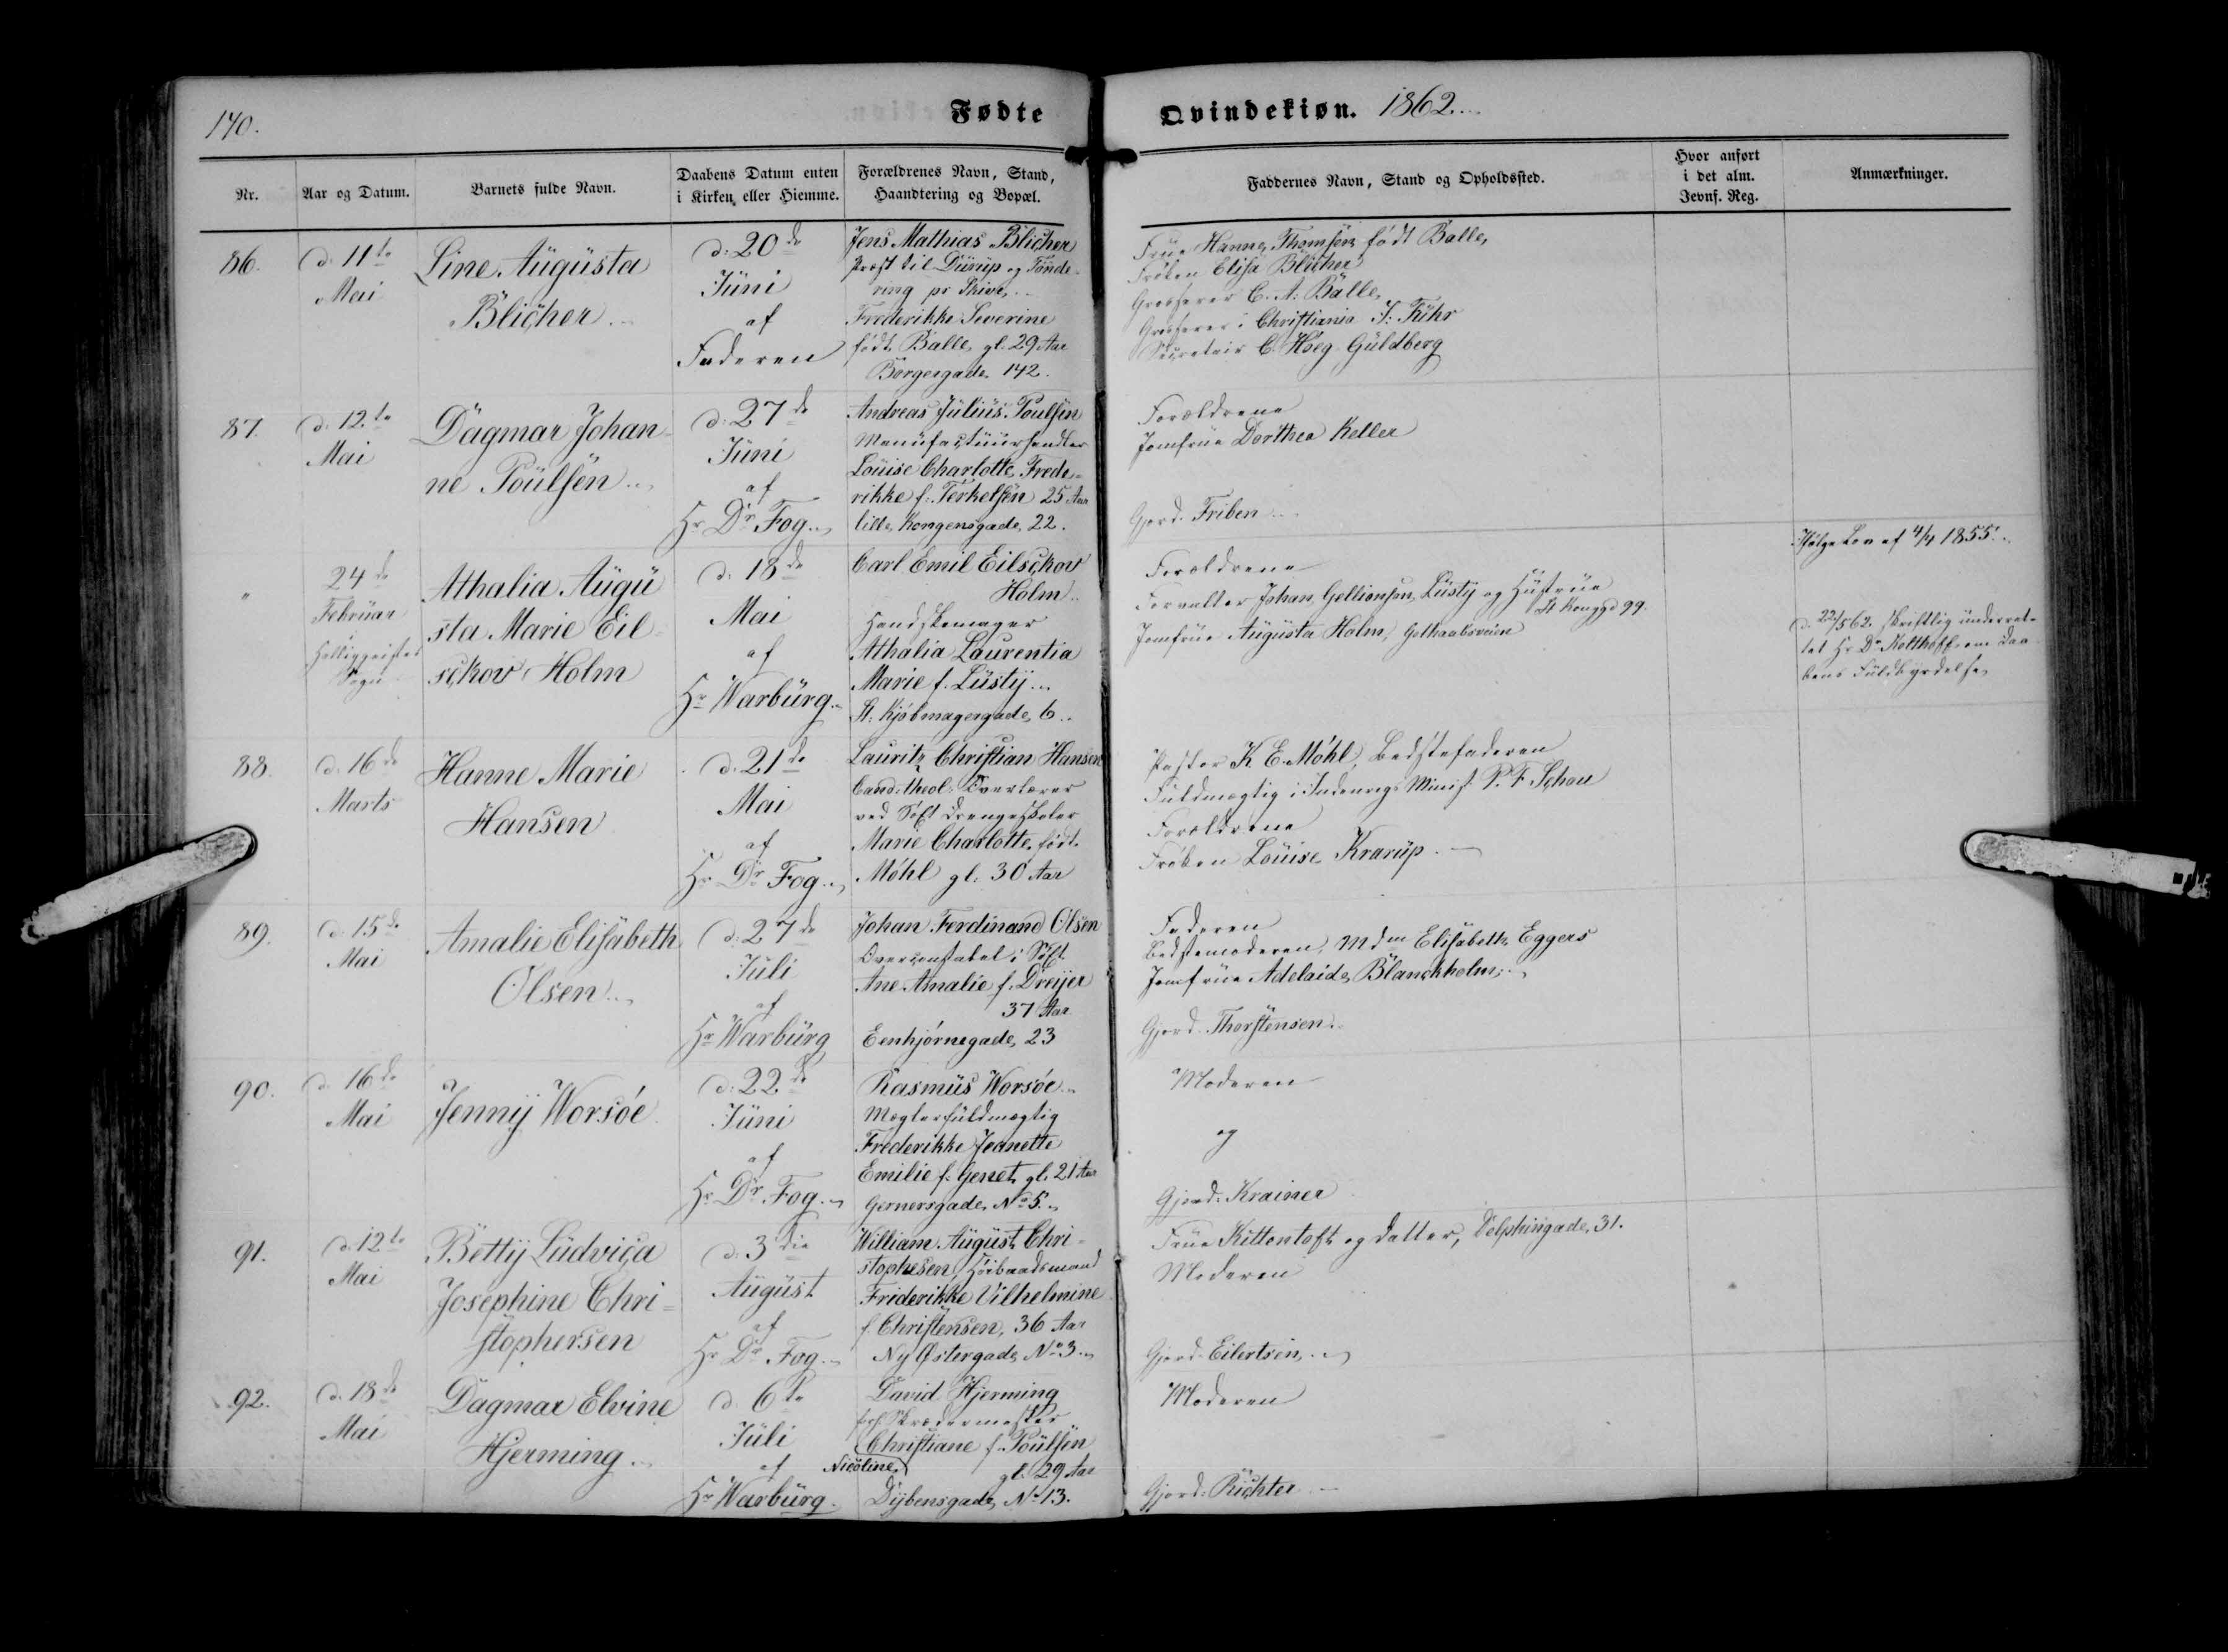 140.
Fødte
Qvindekiøn. 1862.
Nr.
Aar og Datum.
Barnets fulde Navn.
Daabens Datum enten
i Kirken eller Hiemme.
Forældrenes Navn, Stand,
Haandtering og Bopæl.
Faddernes Navn, Stand og Opholdssted.
Hvor anført
i det alm.
Jevnf. Reg.
Anmærkninger.
86.
d. 11te
Mai
Line Augusta
Blicher
d: 20de
Juni
af
Faderen
Jens Mathias Blicher
Præst til Durup og Tønde-
ring pr Skive
Frederikke Severine
født Balle, gl. 29 Aar
Borgergade 142.
Frue Hanne Thomsen født Balle,
Frøken Elisa Blicher
Grosserer C. A. Balle,
Grosserer i Christiania J: Fuhr
Secretair C. Høeg-Guldberg
87.
d. 12te
Mai
Dagmar Johan-
ne Poulsen
d: 27de
Juni
af
Hr Dr Fog
Andreas Julius Poulsen
Manufacturhandler
Louise Charlotte Frede-
rikke f: Terkelsen 25 Aar
lille Kongensgade 22.
Forældrene
Jomfrue Dorthea Keller
Gjord. Friben
"
24de
Februar
Helliggeistes
Sogn
Athalia Augu
sta Marie Eil-
schov Holm
d. 18de
Mai
af
Hr Warburg
Carl Emil Eilschov
Holm
Handskemager
Athalia Laurentia
Marie f. Lustij
St: Kjøbmagergade 6
Forældrene
Forvalter Johan Lustij og Hustrue
St Kongsgd 99.
Jomfrue Augusta Holm, Gothaabsveien
Ifølge Lov af 4/4 1855.
d. 22/5 62. skriftlig underret-
tet Hr Dr Kolthoff om Daa-
bens Fuldbyrdelse
88.
d. 16de
Marts
Hanne Marie
Hansen
d: 21de
Mai
af
Hr Dr Fog
Lauritz Christian Hansen
Cand: theol. Overlærer
ved Søet: Drengeskoler
Marie Charlotte født
Møhl gl: 30 Aar
Pastor K. E. Møhl, Bedstefaderen
Fuldmægtig i Indenrigs Minist. P. F. Schou
Forældrene
Frøken Louise Krarup
89.
d: 15de
Mai
Amalie Elisabeth
Olsen
d: 27de
Juli
af
Hr Warburg
Johan Ferdinand Olsen
Overconstabel i Søet.
Ane Amalie f. Dreijer
37 Aar
Eenhjørnegade 23
Faderen
Bedstemoderen, Mdm Elisabeth Eggers
Jomfrue Adelaide Blanckholm
Gjord. Thorstensen
90.
d. 16de
Mai
Jennij Worsøe
d: 22de
Juni
af
Hr Dr Fog
Rasmus Worsøe
Mæglerfuldmægtig
Frederikke Jeanette
Emilie f. Genet gl. 21 Aar
Gernersgade No 5.
Moderen
og
Gjord. Krainer
91.
d. 12te
Mai
Bettij Ludvica
Josephine Chri-
stophersen
d: 3die
August
af
Hr Dr Fog
William August Chri-
stophesen, Høibaadsmand
Friderikke Vilhelmine
f. Christensen, 36 Aar
Ny Østergade No 3
Frue Kittentoft og Datter, Delphingade 31.
Moderen
Gjord. Eilertsen
92.
d. 18de
Mai
Dagmar Elvine
Hjerming
d. 6te
Juli
af
Hr Warburg.
David Hjerming
Skrædermester
Christiane f. Poulsen
Nicoline
gl. 29 Aar
Dybensgade No 13.
Moderen
Gjord. Richter